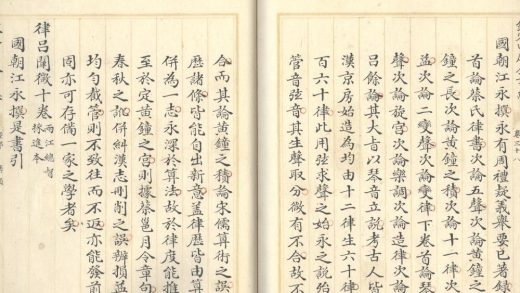 國朝江永撰永有周禮疑義舉要已著録
首論蔡氏律書次論五聲次論黃鐘之
鐘之長次論黃鐘之積次論十一律次
益次論二變聲次論變律下卷首論琴
聲次論旋宮次論樂調次論造律次論
呂餘論其大旨以琴音立說考古人皆
漢京房始造為均由十二律生六十律
百六十律此用弦求聲之始永之說殆
管音弦音其生聲取分微有不合故不
合而其論黃鐘之積論宋儒算術之誤
歷諸條皆能自出新意蓋律歷皆由算
併為一志永深於算法故於律度能推
至於定黃鐘之宮則據蔡邕月令章句
春秋之訛併糾漢志刪削之誤辨損益
均勻截管則不致往而不返亦能發前
固亦可存備一家之學者矣
律呂闡微十卷 兩江總督採進本
國朝江永撰是書引